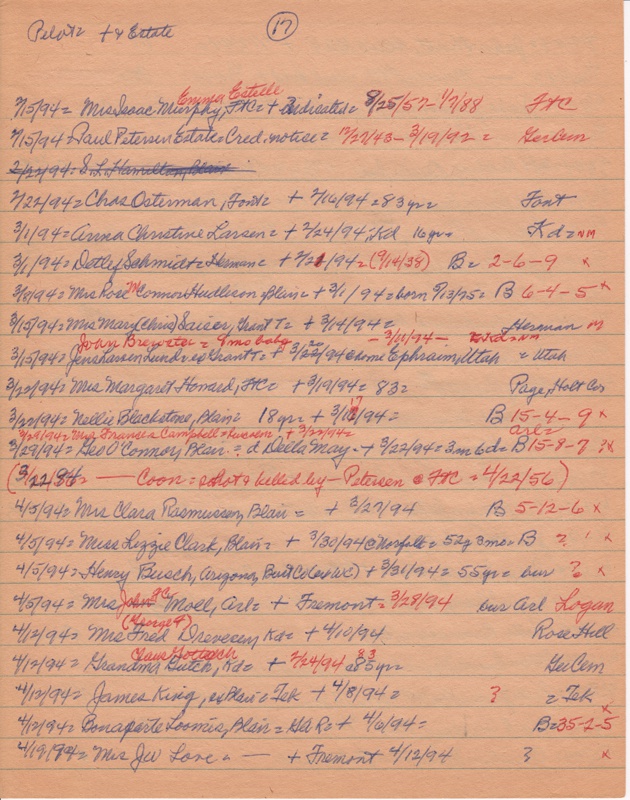 Pilot = + & Estate 17
Emma Estelle
2/15/94 = Mrs Isaac Murphy, FtC = + Dedicated = 8/25/57 - 1/7/88 FtC
2/15/94 = Paul Petersen Estate = Cred. notice = 12/27/43 - 3/19/92 = GerCem
2/22/94 = S. L. Hamilton, Blair
2/22/94 = Chas Osterman, Font = + 2/16/94 = 83 yr = Font
3/1/94 = Anna Christine Larsen = + 2/24/94, Kd 16 yr = Kd = NM
3/1/94 = Detlef Schmidt = Herman = + 2/21/94 = (9/14/38) B = 2-6-9 x
3/8/94 = Mrs Rose McConnor Hudleson, Blair = + 3/1/94 = born 9/13/25 = B 6-4-5 x
3/15/94 = Mrs Mary (Chris) Saiser, Grant T = + 3/14/94 = Herman M
John Brewster = 9 mo baby - 3/20/94 - = Kd = NM
3/15/94 = Jens Larsen Lund = eq Grant T = + 3/22/94 @ home Ephraim, Utah = Utah
3/22/94 = Mrs. Margaret Honard, FtC = + 3/19/94 = 83 = Page, Holt Co
3/22/94 = Nellie Blackstone, Blair = 18 yr = + 3/17/94 = B 15-4-9 x
3/29/94 = Mrs Frances Campbell = + 3/22/94 = Arl =
3/29/94 = Geo O'Connor, Blair = d Della May - + 3/22/94 = 3m 6d = B 15-8-7 ? x
(3/22/94 = — Coon = shot & killed by - Petersen @ FtC = 4/22/56)
4/5/94 = Mrs Clara Rasmussen, Blair = + 3/27/94 B 5-12-6 x
4/5/94 = Miss Lizzie Clark, Blair = + 3/30/94 @ Norfolk = 52y 3mo = B ? x
4/5/94 = Henry Busch, Arizona, Burt Co + 3/31/94 = 55 yr = bur ? x
4/5/94 = Mrs John C Moll, Arl = + Fremont = 3/28/94 bur Arl Logan
(George F)
4/12/94 = Mrs Fred Drevesen, Kd = + 4/10/94 Rose Hill
Claus Gottsch
4/12/94 = Grandma Gutch, Kd = + 2/24/94 = 83 85 yr = GerCem
4/12/94 = James King, ex Blair = Tek + 4/8/94 = ? = Tek
4/12/94 = Bonaparte Loomis, Blair = + 4/6/94 = B = 35-2-5 x
4/19/94 = Mrs JW Love = — + Fremont 4/12/94 ? x